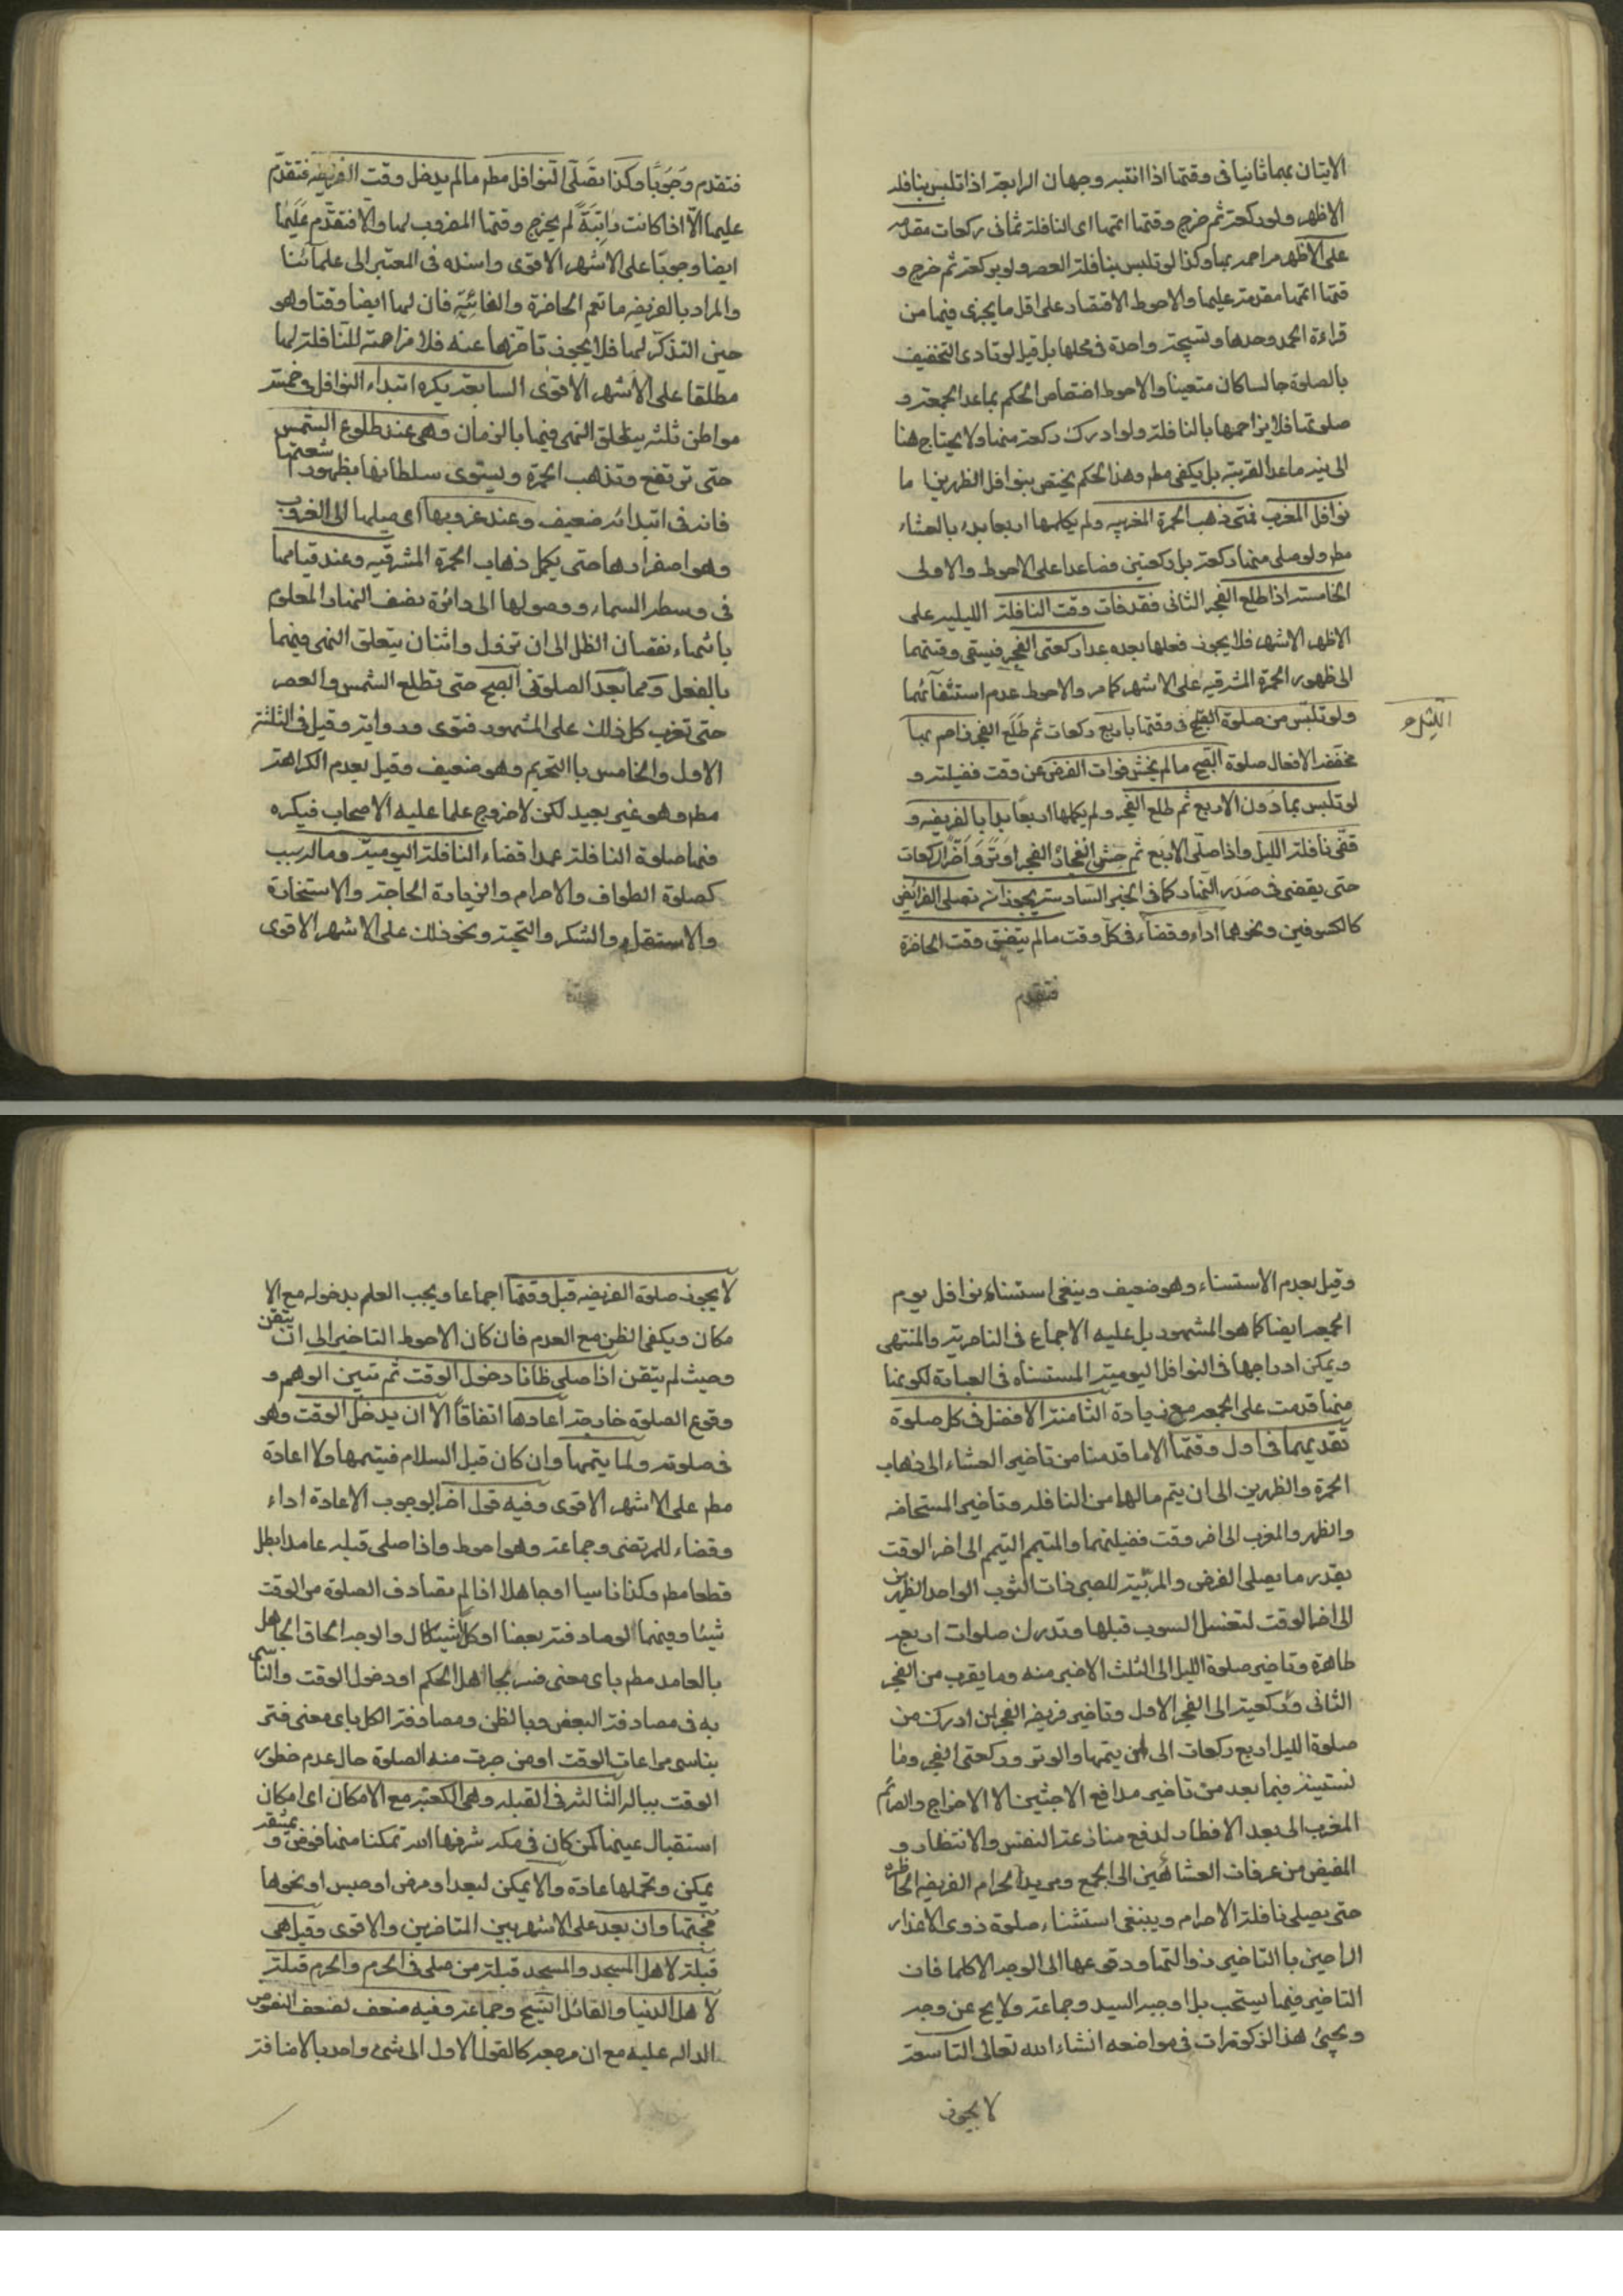 الاتيان بهما ثانيا فى وقتها اذا انتبه وجهان الرابعة اذا تلبس بنافلة
الاظهر ولو ركعة ثم خرج وقتها اتمها اى النافلة ثمانى ركعات مقدمه
على الاظهر مزاحمه بها وكذا لو تلبس بنافلة العصر ولو بركعة ثم خرج و
قتها اتمها مقدمة عليها والاحوط الاقتصاد على اقل ما يجزى فيها من
قراءة الحمد وحدها وتسبيحة واحدة فى محلها بل قيل لو تادى التخفيف
بالصلوة جالسا كان متعينا والاحوط اختصاص الحكم بماعدا الجمعة و
صلوتها فلا يزاحمها بالنافلة ولو ادرك ركعة منها ولا يحتاج هنا
الى نيه ماعدا القربة بل يكفى مطر وهذا الحكم يختص بنوافل الظهرين اما
نوافل المغرب فمتى ذهب الحمرة المغربيه ولم يكملها اربعا بدء بالعشاء
مطر ولو صلى منها ركعة بل ركعتين فصاعدا على الاحوط والاولى
الخامسة اذا طلع الفجر الثانى فقد فات وقت النافلة الليليه على
الاظهر الاشهر فلا يجوز فعلها بعده عدا ركعتى الفجر فيبقى وقتهما
الى ظهور الحمرة المشرقيه على الاشهر كما مر والاحوط عدم استثنآئهما
ولو تلبس من صلوة الليل فى وقتها باربع ركعات ثم طلع الفجر زاحم بها
الليل م
مخففة الافعال صلوة الصبح ما لم يخش فوات الفرض عن وقت فضيلته و
لو تلبس بما دون الاربع ثم طلع الفجر ولم يكملها اربعا بدا بالفريضه و
قضى نافلة الليل واذا صلى الاربع ثم خشى انفجار الفجر اوتر واخر الركعات
حتى يقضى فى صدر النهار كما فى الخبر السادسة يجوز ان تصلى الفرائض
كالكسوفين ونحوهما اداء وقضاء فى كل وقت ما لم يتضيق وقت الحاضرة
فتقدم
فتقدم وجوبا وكذا تصلى النوافل مطر ما لم يدخل وقت الفريضه فتقدم
عليها الا اذا كانت راتبة لم يخرج وقتها المضروب لها والا فتقدم عليها
ايضا وجوبا على الاشهر الاقوى واسنده فى المعتبر الى علمآئنا
والمراد بالفريضه ما تعم الحاضرة والفائته فان لها ايضا وقتا وهو
حين التذكر لها فلا يجوز تاخرها عنه فلا مزاحمة للنافلة لها
مطلقا على الاشهر الاقوى السابعة يكره ابتداء النوافل فى خمسة
مواطن ثلثه يتعلق النهى فيها بالزمان وهى عند طلوع الشمس
حتى ترتفع وتذهب الحمرة ويستوى سلطانها بظهور اشعتها
فانه فى ابتدائه ضعيف وعند غروبها اى ميلها الى الغروب
وهو اصفرارها حتى يكمل ذهاب الحمرة المشرقيه وعند قيامها
فى وسط السماء ووصولها الى دائرة نصف النهار المعلوم
بانتهاء نقصان الظل الى ان تزول واثنان يتعلق النهى فيهما
بالفعل وهما بعد الصلوتى الصبح حتى تطلع الشمس والعصر
حتى تغرب كل ذلك على المشهور فتوى ورواية وقيل فى الثلثة
الاول والخامس بالتحريم وهو ضعيف وقيل بعدم الكراهة
مطر وهو غير بعيد لكن لا خروج عما عليه الاصحاب فيكره
فيها صلوة النافلة عدا قضاء النافلة اليومية وماله سبب
كصلوة الطواف والاحرام والزيادة الحاجة والاستخارة
والاستسقاء والشكر والتحية ونحو ذلك على الاشهر الاقوى
وقيل بعدم الاستثناء وهو ضعيف وينبغى استثناء نوافل يوم
الجمعه ايضا كما هو المشهور بل عليه الاجماع فى الناصرية والمنتهى
ويمكن ادراجها فى النوافل اليومية المستثناه فى العبادة لكونها
منها قدمت على الجمعه مع زيادة الثامنة الافضل فى كل صلوة
تقديمها فى اول وقتها الا ما قدمنا من تاخير العشاء الى ذهاب
الحمرة والظهرين الى ان يتم مالها من النافله وتاخير المستحاضه
والظهر والمغرب الى اخر وقت فضيلتهما والمتيمم التيمم الى اخر الوقت
بقدر ما يصلى الفرض والمربية للصبى ذات الثوب الواحد الظهرين
الى اخر الوقت لتغسل الثوب قبلها وتدرك صلوات اربعه
طاهرة وتاخير صلوة الليل الى الثلث الاخير منه وما يقرب من الفجر
الثانى وركعتيه الى الفجر الاول وتاخير فريضه الفجر لمن ادرك من
صلوة الليل اربع ركعات الى ان يتمها والوتر وركعتى الفجر وما
نستينه فيما بعد من تاخير مدافع الاخبثين الا الاخراج والصائم
المغرب الى بعد الافطار لدفع منازعة النفس والانتظار و
المفيض من عرفات العشائين الى الجمع ومريد الاحرام الفريضه الحاظره
حتى يصلى نافلة الاحرام وينبغى استثناء صلوة ذوى الاعذار
الراجين بالتاخير زوالها ودقوعها الى الوجه الاكمل فان
التاخير فيها يستحب بل اوجبه السيد وجماعة ولا يخ عن وجه
ويجئ هذا الذكورات فى مواضعه انشاء الله تعالى التاسعة
لا يجوز
لا يجوز صلوة الفريضه قبل وقتها اجماعا ويجب العلم بدخوله مع الا
مكان ويكفى الظن مع العدم فان كان الاحوط التاخير الى ان يتقن
وحيث لم يتقن اذا صلى ظانا دخول الوقت ثم تبين الوهم و
وقوع الصلوة خارجة اعادها اتفاقا الا ان يدخل الوقت وهو
فى صلوته ولما يتمها وان كان قبل السلام فيتمها ولا اعادة
مطر على الاشهر الاقوى وفيه قول اخر بوجوب الاعادة اداء
وقضاء للمرتضى وجماعة وهو احوط واذا صلى قبله عامدا بطل
قطعا مطر وكذا ناسيا او جاهلا اذا لم يصادف الصلوة من الوقت
شيئا وفيهما لو صادفته بعضا او كلا اشكال والوجه الحاق الجاهل
بالعامد مطر باى معنى فسر بجاهل الحكم او دخول الوقت والناسى
به فى مصادفة البعض وبالظن ومصادفة الكل باى معنى فسر
بناسى مراعات الوقت او من جرت منه الصلوة حال عدم خطور
الوقت بباله الثالثة فى القبله وهى الكعبة مع الامكان اى امكان
استقبال عينها كمن كان فى مكه شرفها الله تمكنا منها فوض و بمشقة
يمكن وتحملها عادة والا يمكن لبعد او مرض او حبس او نحوها
فجهتها وان بعد على الاشهر بين المتاخرين والاقوى وقيل هى
قبلة لاهل المسجد والمسجد قبلة من صلى فى الحرم والحرم قبلة
لاهل الدنيا والقائل الشيخ وجماعة وفيه ضعف لضعف النصوص
الداله عليه مع ان مرجعه كالقول الاول الى شئ واحد بالاضافة